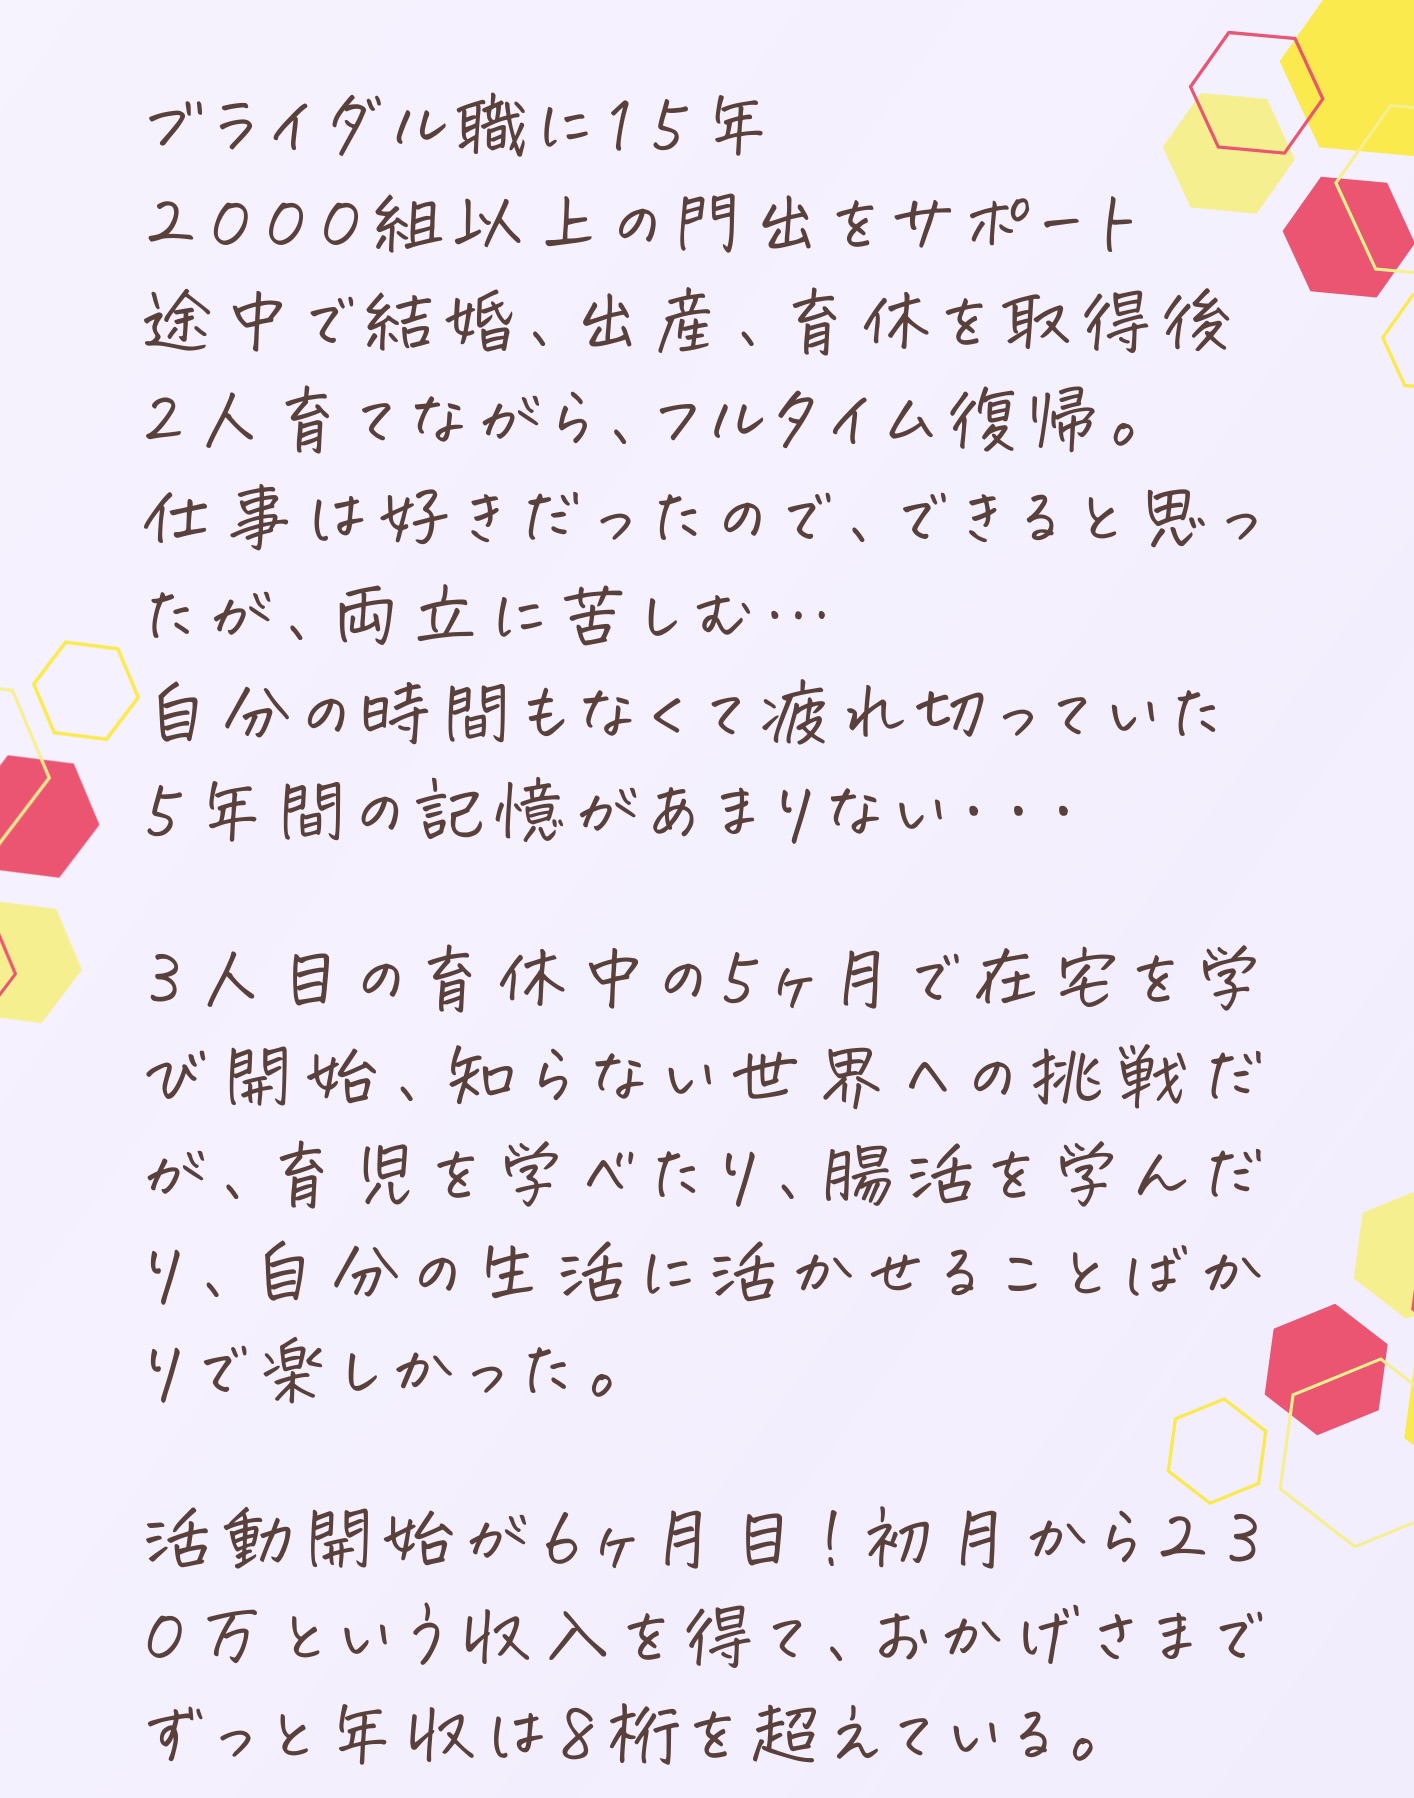 ブライダル職に15年
2000組以上の門出をサポート
途中で結婚、出産、育休を取得後
2人育てながら、フルタイム復帰。
仕事は好きだったので、できると思っ
たが、両立に苦しむ…
自分の時間もなくて疲れ切っていた
5年間の記憶があまりない・・・
3人目の育休中の5ヶ月で在宅を学
び開始、知らない世界への挑戦だ
が、育児を学べたり、腸活を学んだ
り、自分の生活に活かせることばか
りで楽しかった。
活動開始が6ヶ月目！初月から23
0万という収入を得て、おかげさまで
ずっと年収は8桁を超えている。